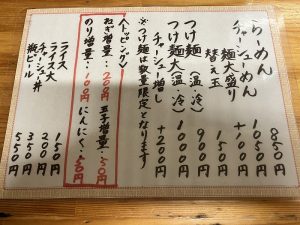 らーめん 850円
チャーシューめん 1050円
麺大盛り +100円
替え玉 150円
つけ麺(温・冷) 900円
つけ麺大(温・冷) 1000円
チャーシュー増し +200円
※つけ麺は数量限定となります
〈トッピング〉
ねぎ増量・・200円 玉子増量・・50円
のり増量・・100円 にんにく・・50円
ライス 150円
ライス大 200円
チャーシュー丼 350円
瓶ビール 550円